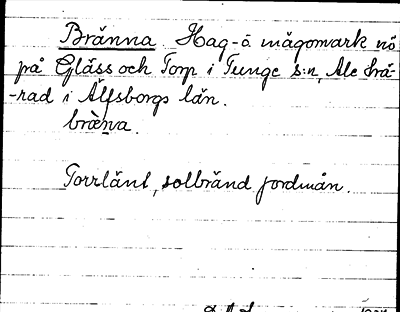 Brănna Hag-o măgomark nö
på Glăss och Torp i Tunge s:n, Ale hă-
-rad i Älfsborgs lăn.
bræna.
Torrlănt, solbrănd jordmån.